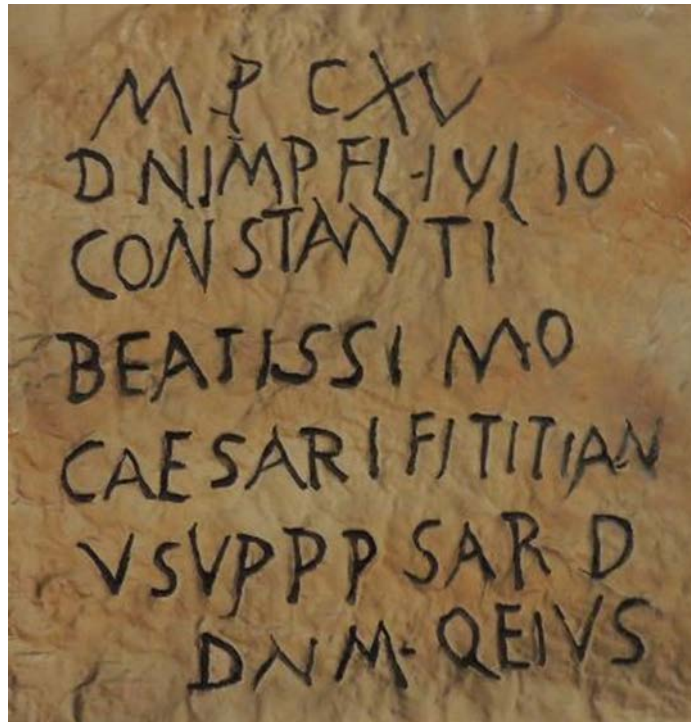 M P CXV
D N IMP FL·IVLIO
CONSTANTI
BEATISSIMO
CAESARI FI TITIAN
VSVPPP SAR D
DNM·QEIVS